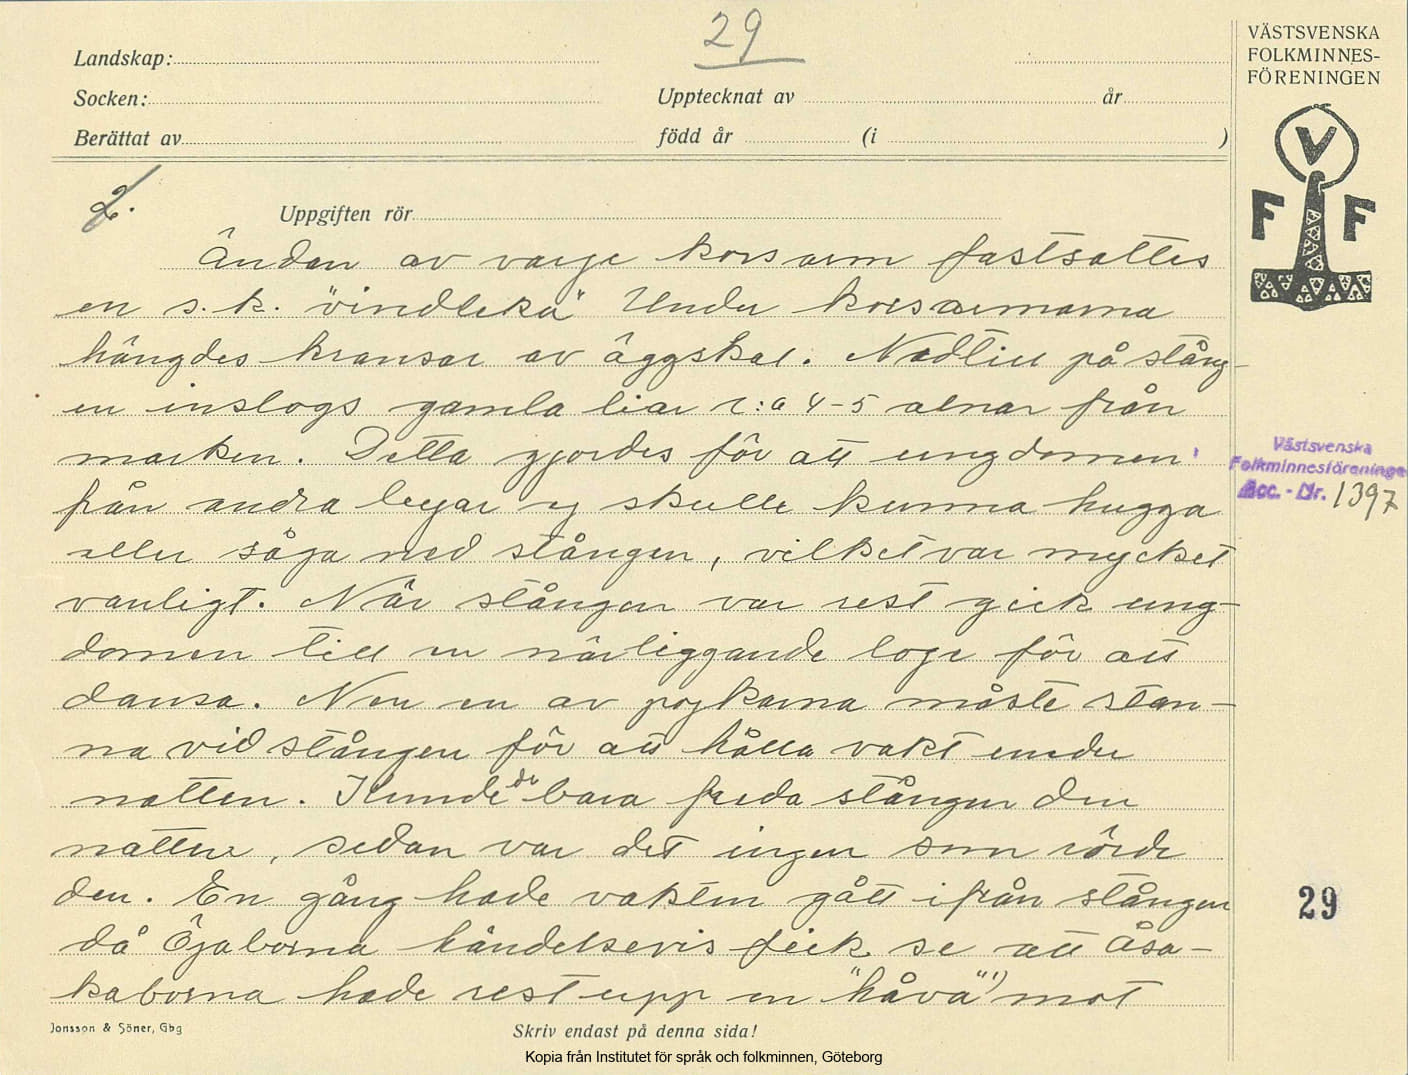 29
Landskap:
VÄSTSVENSKA
FOLKMINNES-
FÖRENINGEN
Socken:
Upptecknat av år
Berättat av
född år (i )
V
F F
2.
Uppgiften rör
Ändan av varje korsarm fastsattes
en s.k. "vindleka" Under korsarmarna
hängdes kransar av äggskal. Nedtill på stång-
en inslogs gamla liar c:a 4-5 alnar från
marken. Detta gjordes för att ungdomen
från andra byar ej skulle kunna hugga
eller såga ned stången, vilket var mycket
vanligt. När stången var rest gick ung-
domen till en närliggande loge för att
dansa. Men en av pojkarna måste stan-
na vid stången för att hålla vakt under
natten. Kunde de bara freda stången den
natten, sedan var det ingen som rörde
den. En gång hade vakten gått ifrån stången
då Öjaborna händelsevis fick se att Åsa-
kaborna hade rest upp en "håva"1) mot
Västsvenska
Folkminnesföreninge
Acc. - Nr. 1397
29
Jonsson & Söner, Gbg
Skriv endast på denna sida!
Kopia från Institutet för språk och folkminnen, Göteborg